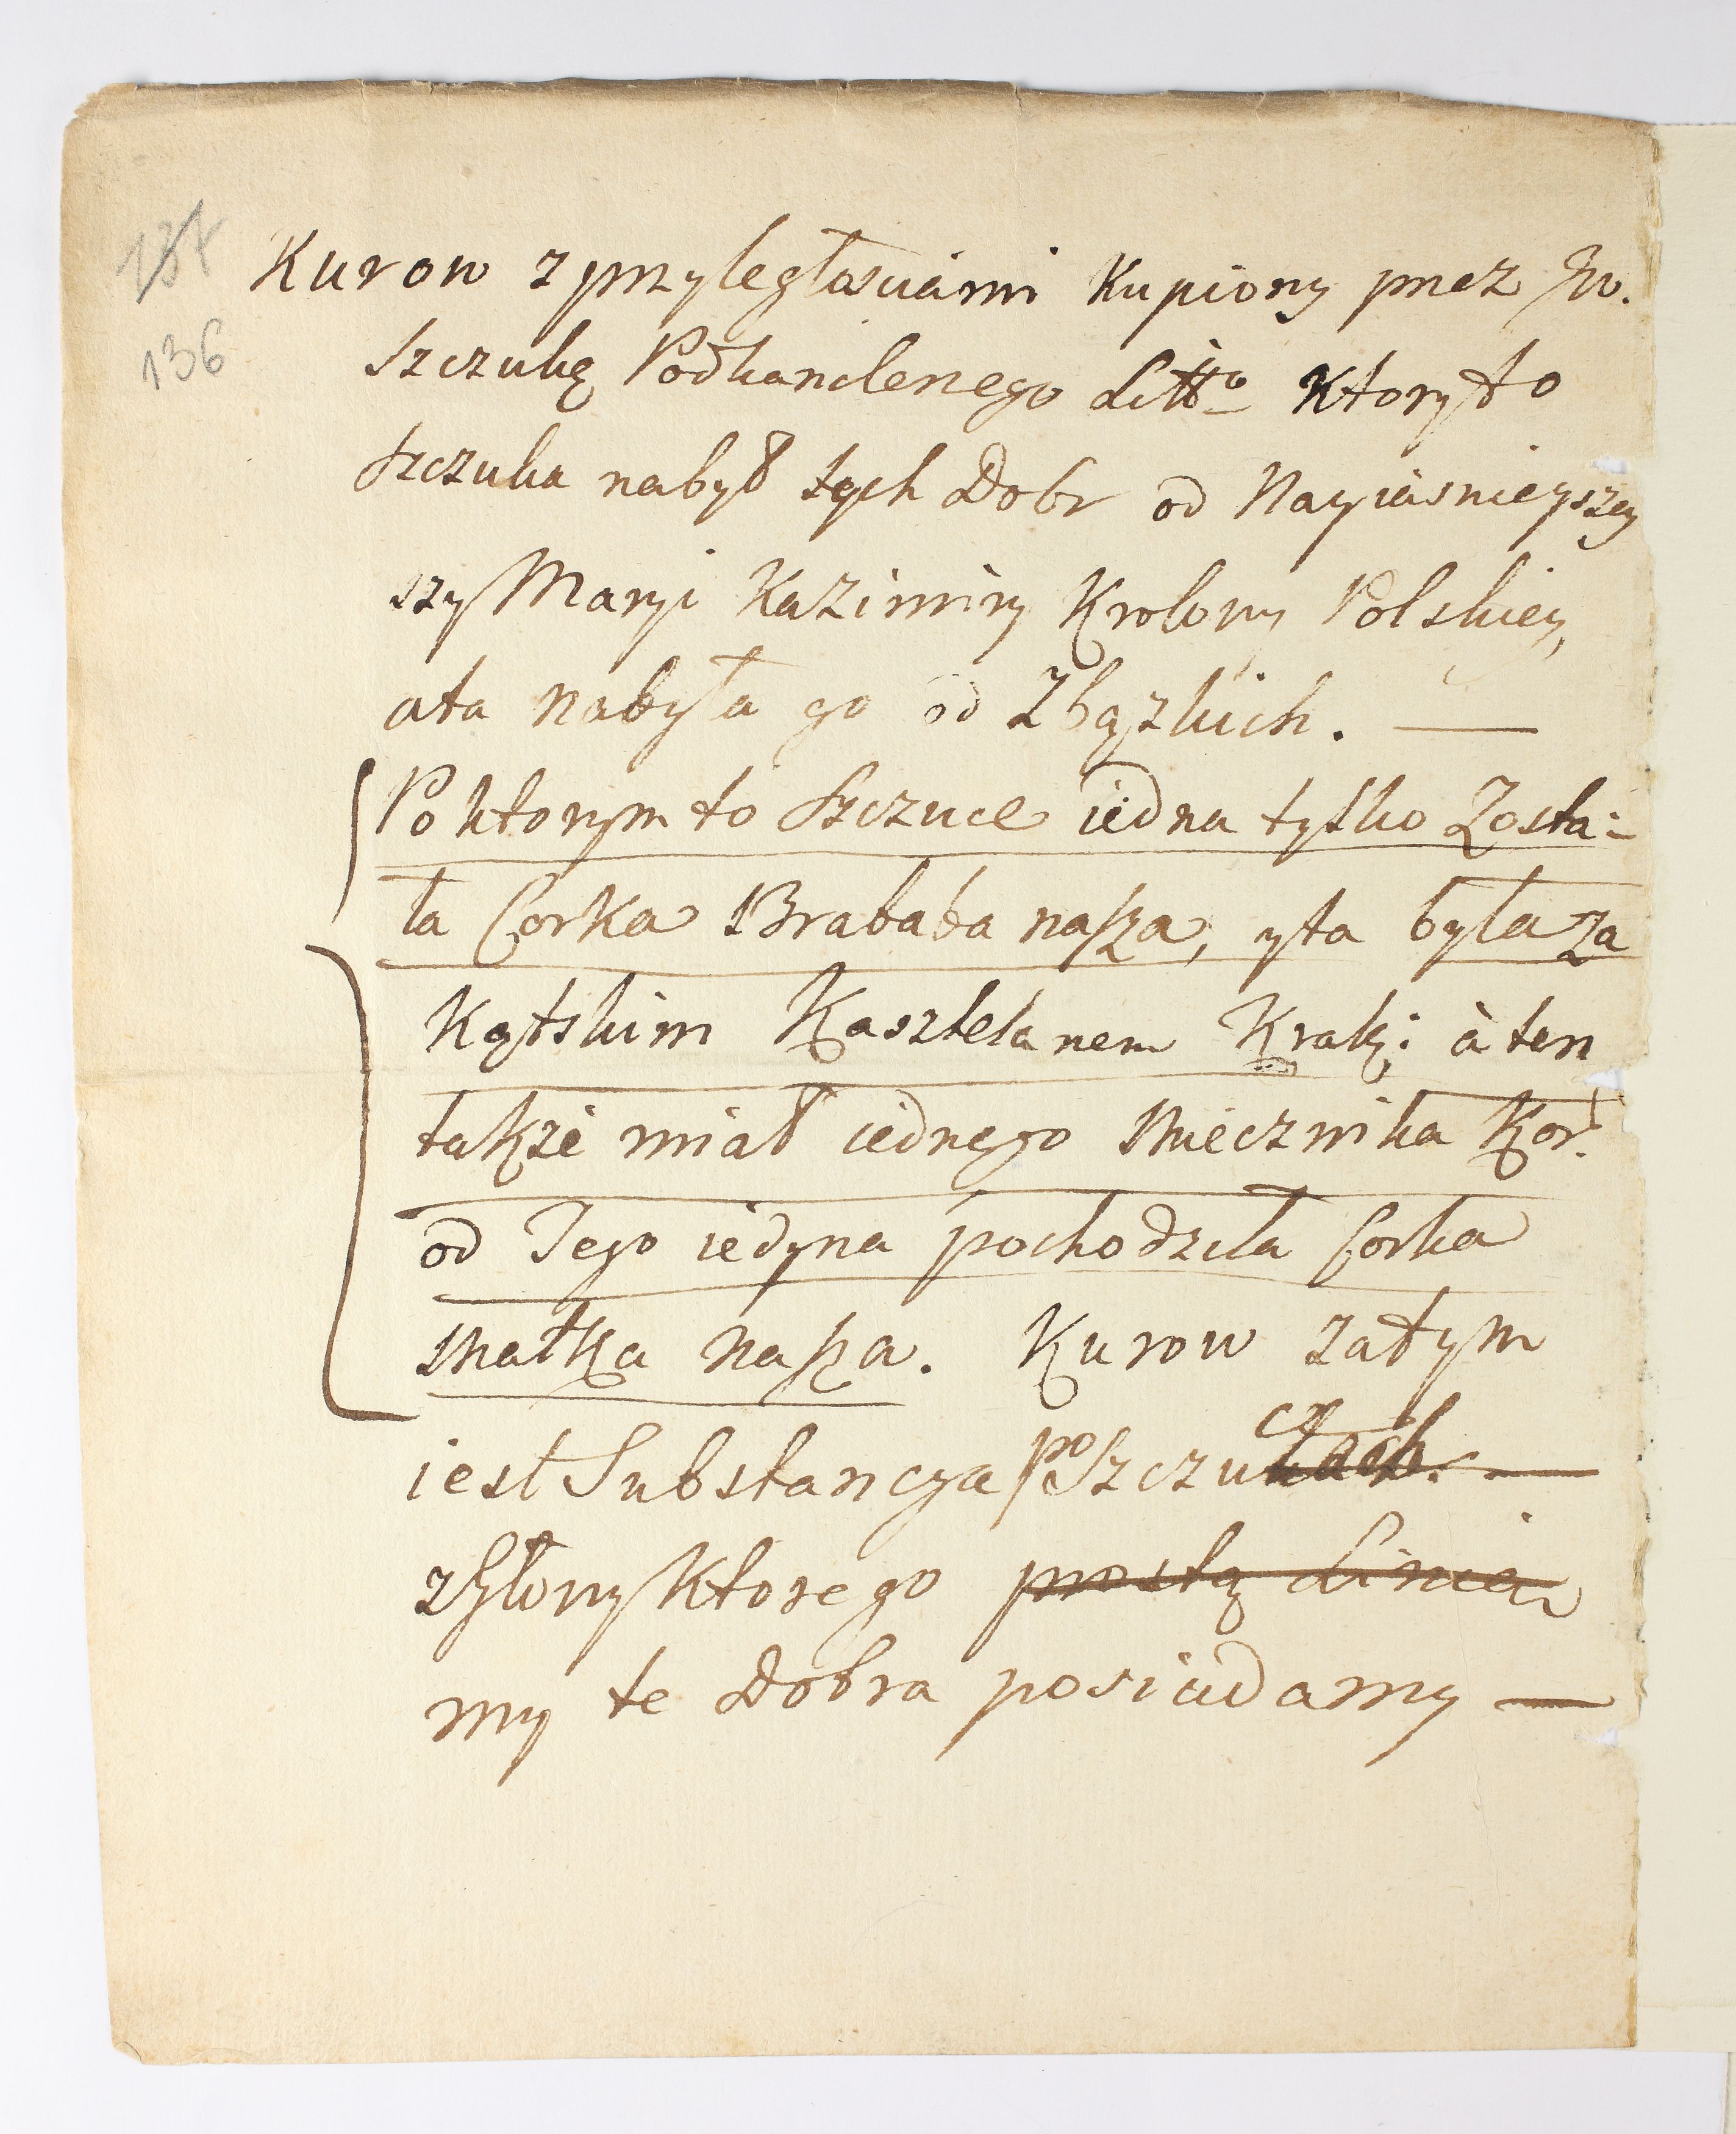 137
136
Kurow z przyległosciami Kupiony przez Jw.
Szczukę Podkanclerzego Litto Ktory to
Szczuka nabył tych Dobr od Nayiasnieyszey
szy Maryi Kazimiry Krolowy Polskiey,
ata nabyła go od Zbązkich. —
Po ktorym to Szczuce iedna tylko Zosta=
ła Corka Prababa nasza, y ta była za
Kątskim Kasztelanem Krak: à ten
takze miał iednego Miecznika Kor:
od Tego iedyna pochodziła Corka
Matka nasza. Kurow zatym
iest Substancya po Szczukach. cy —
z Głowy Ktorego prostą Linią
my te Dobra posiadamy —